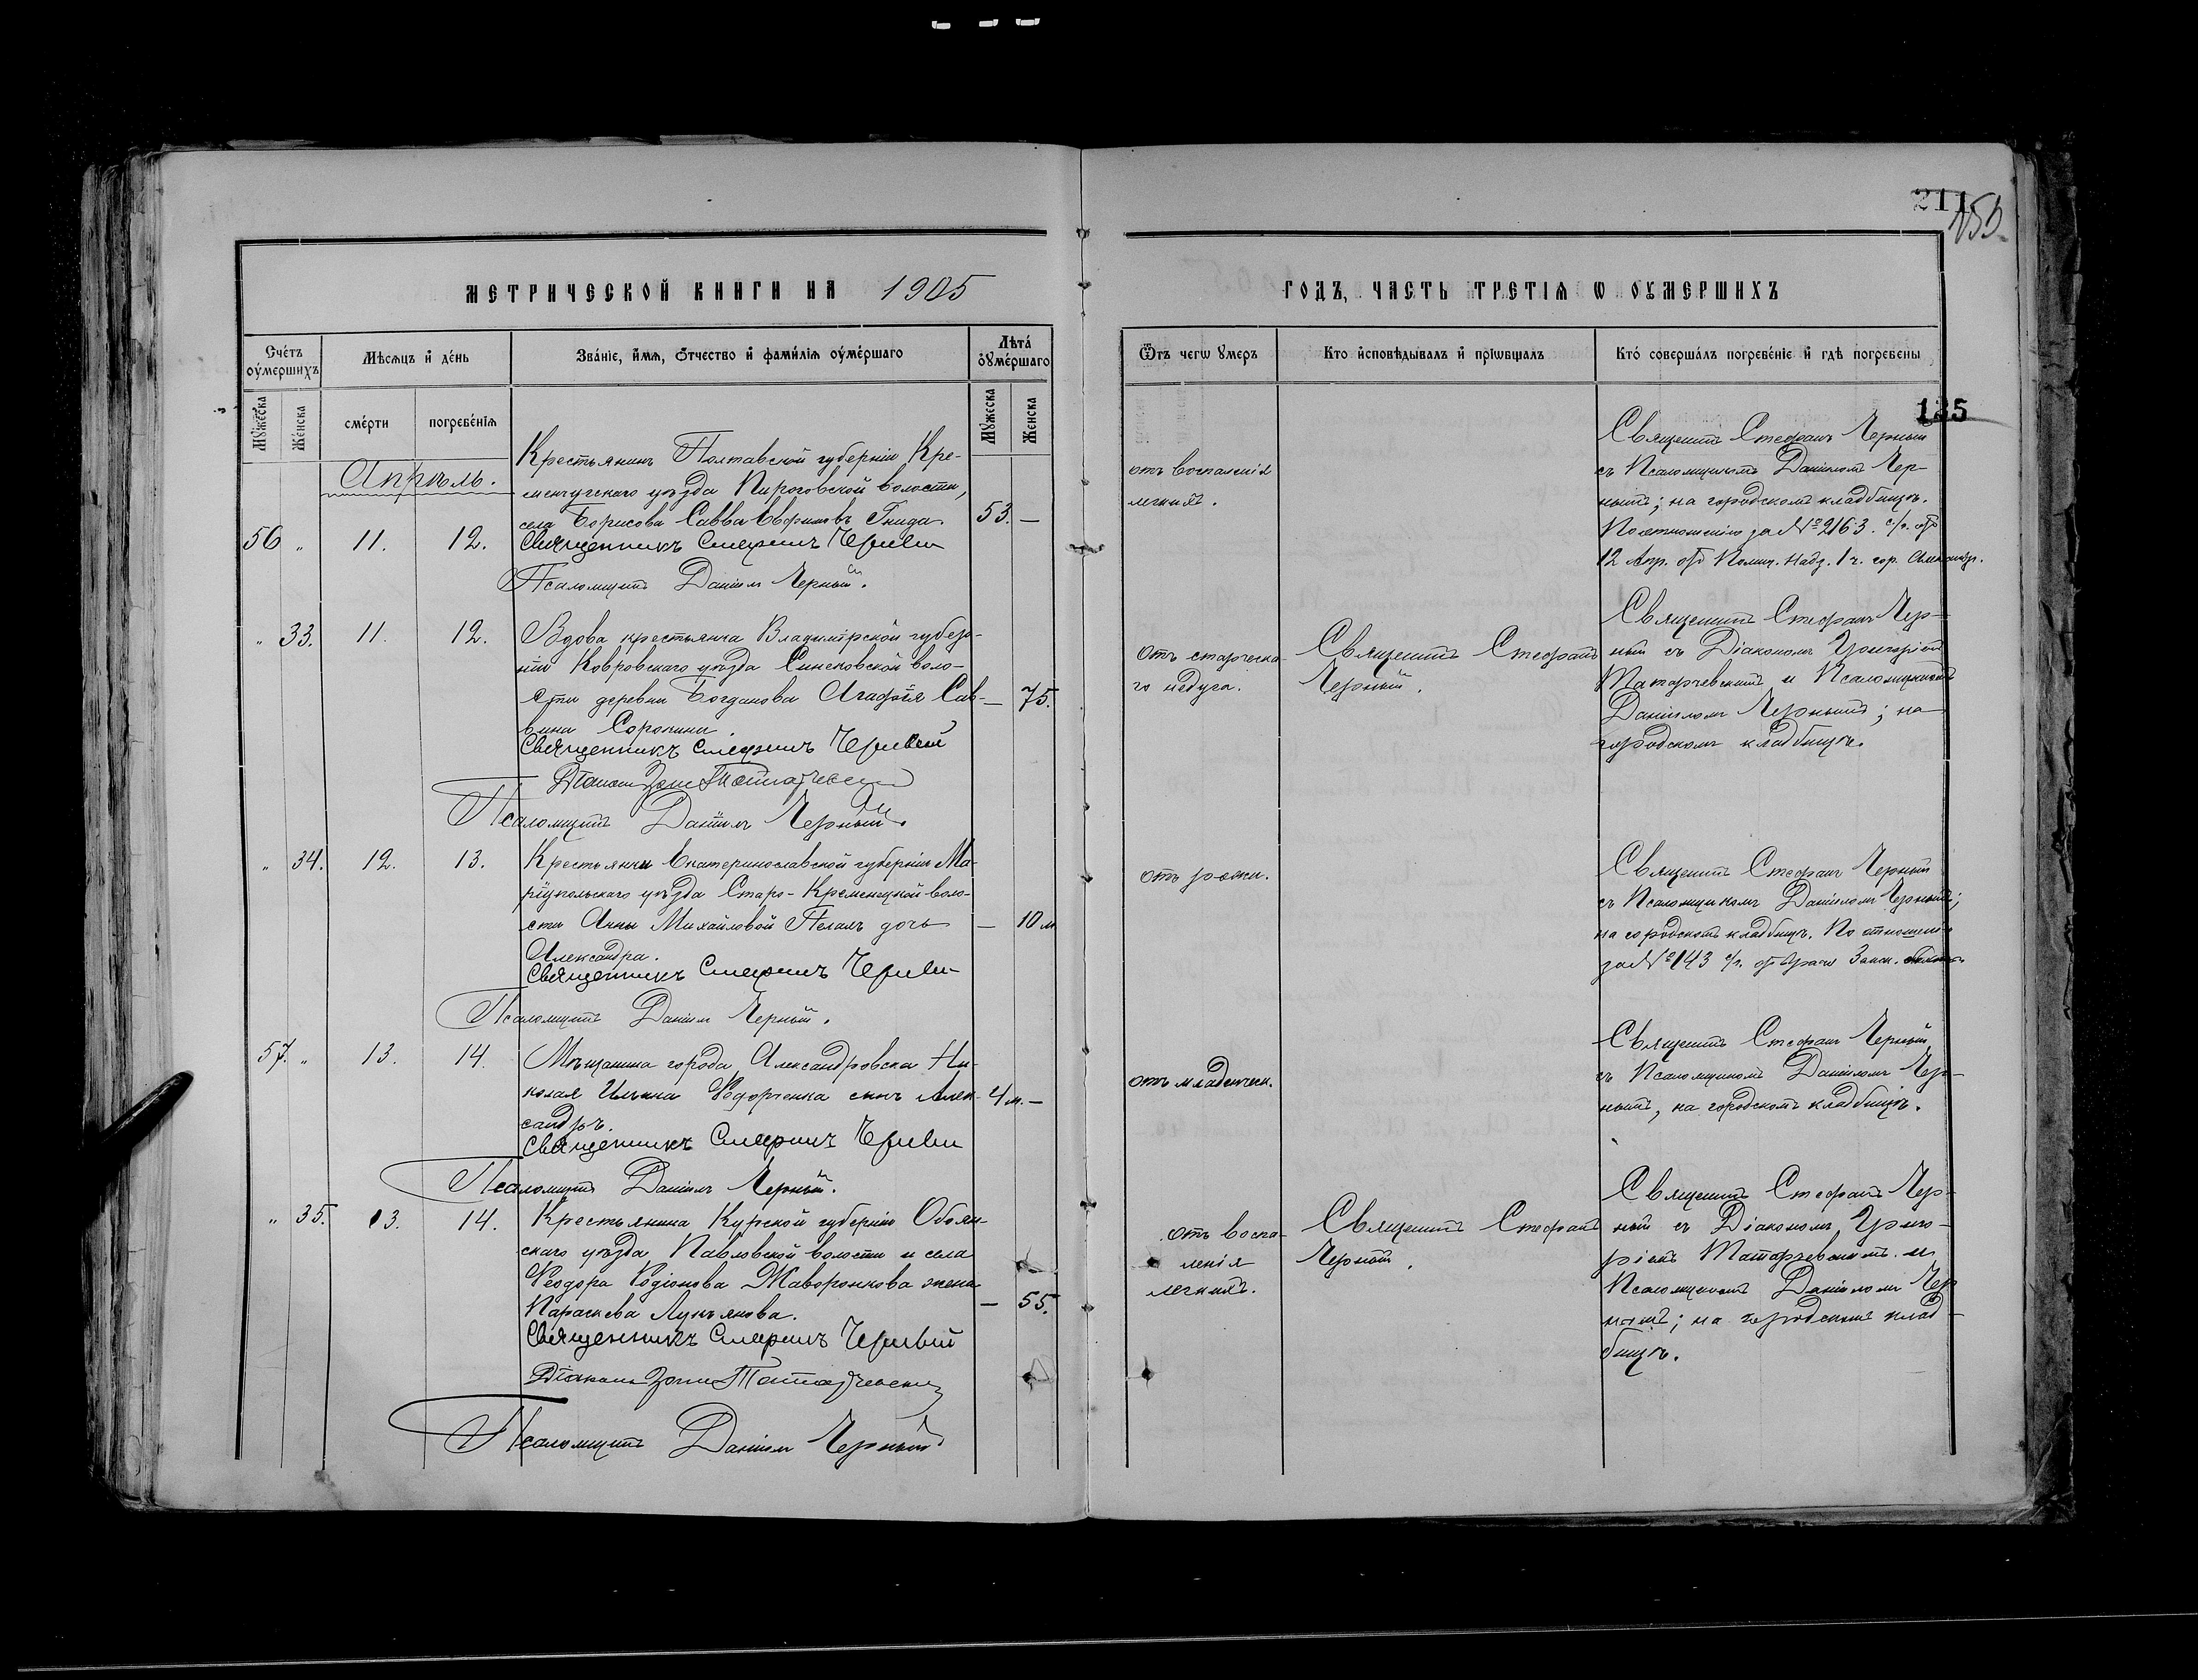 211
150
МЕТРИЧЕСКОЙ КНИГИ НА 1905
ГОДЪ, ЧАСТЬ ТРЕТІѦ Ѡ ОУМЕРШИХЪ
Счетъ оумершихъ
Мѣсѧцъ и день
Званіе, имѧ, отчество и фамилія оумершаго
Лѣта оумершаго
Мужеска
Женска
смерти
погребенія
Мужеска
Женска
Ѿтъ чегѡ умеръ
Кто исповѣдывалъ и пріѡбщалъ
Кто совершалъ погребеніе и гдѣ погребены
125
Апрѣль.
56 " 11. 12.
Крестьянинъ Полтавской губерніи Кре-
менчугскаго уѣзда Пироговской волости,
села Борисова Савва Ефимовъ Гнида.
53. —
Священникъ Стефанъ Черный
Псаломщикъ Даніилъ Черный.
отъ воспаленія
легкихъ.
Священникъ Стефанъ Черный
съ Псаломщикомъ Даніиломъ Чер-
нымъ; на городскомъ кладбищѣ.
По отношенію за № 2163. с/г. отъ
12 Апр. отъ Полиц. Надз. 1 ч. гор. Александр.
" 33. 11. 12.
Вдова крестьянка Владимірской губер-
ніи Ковровскаго уѣзда Санековской воло-
сти деревни Богданова Агафія Сав-
вина Сорокина.
— 75.
Священникъ Стефанъ Черный
Діаконъ Григ Татарчевскій
Псаломщикъ Даніилъ Черный.
Отъ старческа-
го недуга.
Священникъ Стефанъ
Черный.
Священникъ Стефанъ Чер-
ный съ Діакономъ Григоріемъ
Татарчевскимъ и Псаломщикомъ
Даніиломъ Чернымъ; на
городскомъ кладбищѣ.
" 34. 12. 13.
Крестьянки Екатеринославской губерніи Ма-
ріупольскаго уѣзда Старо-Кременецкой воло-
сти Анны Михайловой Пелахъ дочь
Александра.
— 10 м
Священникъ Стефанъ Черный
Псаломщикъ Даніилъ Черный.
отъ рожи.
Священникъ Стефанъ Черный
съ Псаломщикомъ Даніиломъ Чернымъ;
на городскомъ кладбищѣ. По отношенію
за № 143 с/г. отъ Врача Земск.
57. " 13. 14.
Мѣщанина города Александровска Ни-
колая Ильина Ѳедорченка сынъ Алек-
сандръ.
4 м. —
Священникъ Стефанъ Черный
Псаломщикъ Даніилъ Черный.
отъ младенческ.
Священникъ Стефанъ Черный
съ Псаломщикомъ Даніиломъ Чер-
нымъ, на городскомъ кладбищѣ.
" 35. 13. 14.
Крестьянина Курской губерніи Обоян-
скаго уѣзда Павловской волости и села
Ѳеодора Родіонова Жаворонкова жена
Параскева Лукьянова.
— 55.
Священникъ Стефанъ Черный
Діаконъ Григ Татарчевскій
Псаломщикъ Даніилъ Черный
отъ воспа-
ленія
легкихъ.
Священникъ Стефанъ
Черный.
Священникъ Стефанъ Чер-
ный съ Діакономъ Григо-
ріемъ Татарчевскимъ и
Псаломщикомъ Даніиломъ Чер
нымъ; на городскомъ клад-
бищѣ.